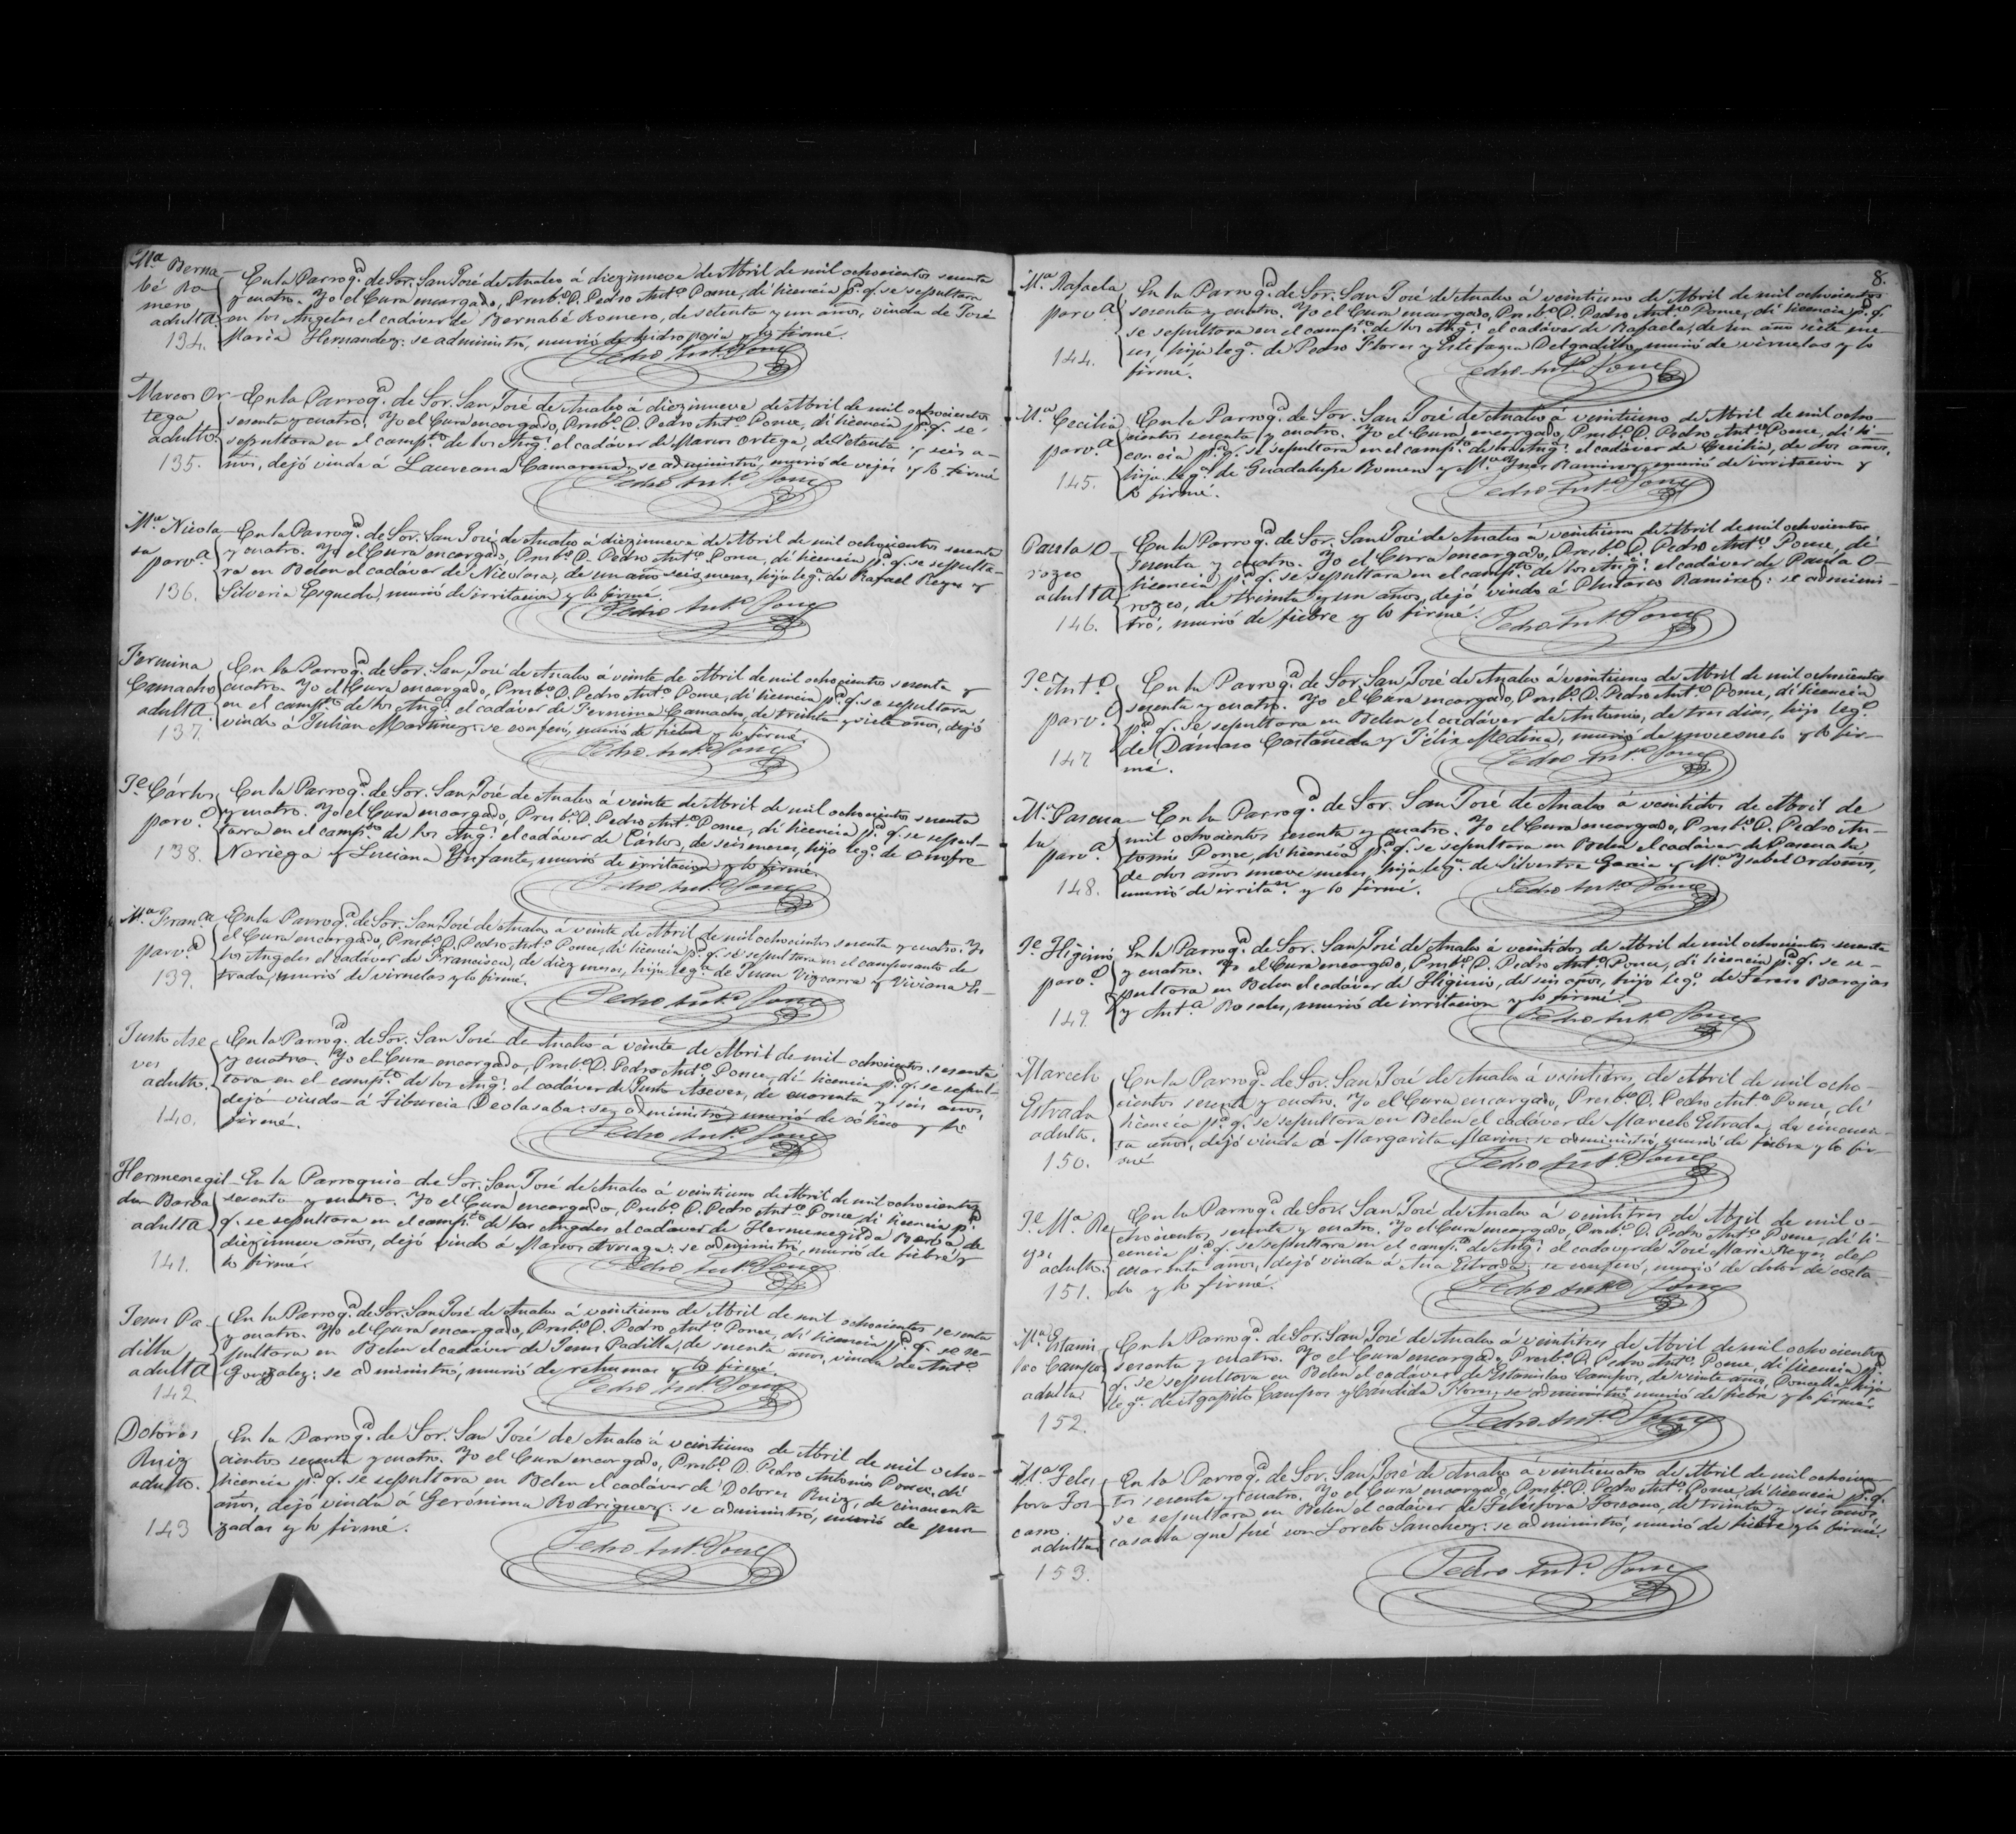 Mª Berna
bé Ro
mero
adulta
134.
En la Parroqª de Sor. San José de Analco á diezinueve de Abril de mil ochocientos sesenta
y cuatro. Yo el Cura encargado, Presbº D. Pedro Antº Ponce, dí licencia pª q. se sepultara
en los Angeles el cadáver de Bernabé Romero, de setenta y un años, viuda de José
Maria Hernandez: se administró, murió de hidropesía y lo firmé.
Pedro Antº Ponce
Marcos Or
tega
adulto.
135.
En la Parroqª de Sor. San José de Analco á diezinueve de Abril de mil ochocientos
sesenta y cuatro. Yo el Cura encargado, Presbº D. Pedro Antº Ponce, dí licencia pª q. se
sepultara en el campto de los Angs el cadáver de Marcos Ortega, de setenta y seis a-
ños, dejó viuda á Laureana Camarena, se administró, murió de vejés y lo firmé
Pedro Antº Ponce
Mª Nicola
sa
parvª
136.
En la Parroqª de Sor. San José de Analco á diezinueve de Abril de mil ochocientos sesenta
y cuatro. Yo el Cura encargado, Presbº D. Pedro Antº Ponce, dí licencia pª q. se sepulta-
ra en Belen el cadáver de Nicolasa, de un año seis meses, hija legª de Rafael Reyes y
Silveria Esqueda, murió de irritacion y lo firmé.
Pedro Antº Ponce
Fermina
Camacho
adulta.
137.
En la Parroqª de Sor. San José de Analco á veinte de Abril de mil ochocientos sesenta y
cuatro. Yo el Cura encargado, Presbº D. Pedro Antº Ponce, dí licencia pª q. se sepultara
en el campto de los Angs el cadáver de Fermina Camacho, de treinta y siete años, dejó
viudo á Julian Martinez: se confesó, murió de fiebre y lo firmé.
Pedro Antº Ponce
Je Cárlos
parvº
138.
En la Parroqª de Sor. San José de Analco á veinte de Abril de mil ochocientos sesenta
y cuatro. Yo el Cura encargado, Presbº D. Pedro Antº Ponce, dí licencia pª q. se sepul-
tara en el campto de los Angs el cadáver de Cárlos, de seis meses, hijo legº de Onofre
Noriega y Luciana Ynfante, murió de irritacion y lo firmé.
Pedro Antº Ponce
Mª Franca
parvª
139.
En la Parroqª de Sor. San José de Analco á veinte de Abril de mil ochocientos sesenta y cuatro. Yo
el Cura encargado, Presbº D. Pedro Antº Ponce, dí licencia pª q. se sepultara en el camposanto de
los Angeles el cadáver de Francisca, de diez meses, hija legª de Juan Vizcarra y Viviana Es-
trada, murió de viruelas y lo firmé.
Pedro Antº Ponce
Justo Ase
ves
adulto.
140.
En la Parroqª de Sor. San José de Analco á veinte de Abril de mil ochocientos sesenta
y cuatro. Yo el Cura encargado, Presbº D. Pedro Antº Ponce, dí licencia pª q. se sepul-
tara en el campto de los Angs el cadáver de Justo Aseves, de cuarenta y seis años,
dejó viuda á Tiburcia Deolasaba: se administró murió de cólico y lo
firmé.
Pedro Antº Ponce
Hermenegil
da Barba
adulta
141.
En la Parroquia de Sor. San José de Analco á veintiuno de Abril de mil ochocientos
sesenta y cuatro. Yo el Cura encargado, Presbº D. Pedro Antº Ponce, dí licencia pª
q. se sepultara en el campto de los Angeles el cadáver de Hermenegilda Barba, de
diezinueve años, dejó viudo á Marcos Arriaga: se administró, murió de fiebre y
lo firmé.
Pedro Antº Ponce
Jesus Pa
dilla
adulta
142
En la Parroqª de Sor. San José de Analco á veintiuno de Abril de mil ochocientos sesenta
y cuatro. Yo el Cura encargado, Presbº D. Pedro Antº Ponce, dí licencia pª q. se se-
pultara en Belen el cadáver de Jesus Padilla, de sesenta años, viuda de Antº
Gonzalez: se administró, murió de rehumas y lo firmé.
Pedro Antº Ponce
Dolores
Ruiz
adulto.
143
En la Parroqª de Sor. San José de Analco á veintiuno de Abril de mil ocho-
cientos sesenta y cuatro. Yo el Cura encargado, Presbº D. Pedro Antonio Ponce, dí
licencia pª q. se sepultara en Belen el cadáver de Dolores Ruiz, de cincuenta
años, dejó viuda á Gerónima Rodriguez: se administró, murió de pun
zadas y lo firmé.
Pedro Antº Ponce
8.
Mª Rafaela
parvª
144.
En la Parroqª de Sor. San José de Analco á veintiuno de Abril de mil ochocientos
sesenta y cuatro. Yo el Cura encargado, Presbº D. Pedro Antº Ponce, dí licencia pª q.
se sepultara en el campto de los Angs el cadáver de Rafaela, de un año siete me-
ses, hija legª de Pedro Flores y Estefana Delgadillo, murió de viruelas y lo
firmé.
Pedro Antº Ponce
Mª Cecilia
parvª
145.
En la Parroqª de Sor. San José de Analco á veintiuno de Abril de mil ocho-
cientos sesenta y cuatro. Yo el Cura encargado, Presbº D. Pedro Antº Ponce, dí li-
cencia pª q. se sepultara en el campto de los Angs el cadáver de Cecilia, de dos años,
hija legª de Guadalupe Romero y Mª Ynes Ramirez, murió de irritacion y
lo firmé.
Pedro Antº Ponce
Paula O
rozco
adulta
146.
En la Parroqª de Sor. San José de Analco á veintiuno de Abril de mil ochocientos
sesenta y cuatro. Yo el Cura encargado, Presbº D. Pedro Antº Ponce, dí
licencia pª q. se sepultara en el campto de los Angs el cadáver de Paula O-
rozco, de treinta y un años, dejó viudo á Plutarco Ramirez: se adminis-
tró, murió de fiebre y lo firmé.
Pedro Antº Ponce
Je Antº
parvº
147
En la Parroqª de Sor. San José de Analco á veintiuno de Abril de mil ochocientos
sesenta y cuatro. Yo el Cura encargado, Presbº D. Pedro Antº Ponce, dí licencia
pª q. se sepultara en Belen el cadáver de Antonio, de tres dias, hijo legº
de Dámaso Castañeda y Félix Medina, murió de mocesuelo y lo fir-
mé.
Pedro Antº Ponce
Mª Pascua
la
parvª
148.
En la Parroqª de Sor. San José de Analco á veintidos de Abril de
mil ochocientos sesenta y cuatro. Yo el Cura encargado, Presbº D. Pedro An-
tonio Ponce, dí licencia pª q. se sepultara en Belen el cadáver de Pascuala
de dos años nueve meses, hija legª de Silvestre Garcia y Mª Ysabel Ordoñes,
murió de irritan y lo firmé.
Pedro Antº Ponce
Je Higinio
parvº
149.
En la Parroqª de Sor. San José de Analco á veintidos de Abril de mil ochocientos sesenta
y cuatro. Yo el Cura encargado, Presbº D. Pedro Antº Ponce, dí licencia pª q. se se-
pultara en Belen el cadáver de Higinio, de seis años, hijo legº de Barajas
y Antª Rosales, murió de irritacion y lo firmé.
Pedro Antº Ponce
Marcelo
Estrada
adulto.
150.
En la Parroqª de Sor. San José de Analco á veintitres de Abril de mil ocho-
cientos sesenta y cuatro. Yo el Cura encargado, Presbº D. Pedro Antº Ponce, dí
licencia pª q. se sepultara en Belen el cadáver de Marcelo Estrada, de cincuen-
ta años, dejó viuda á Margarita Marin: se administró, murió de fiebre y lo fir-
mé
Pedro Antº Ponce
Je Mª Re
yes
adulto.
151.
En la Parroqª de Sor. San José de Analco á veintitres de Abril de mil o-
chocientos sesenta y cuatro. Yo el Cura encargado, Presbº D. Pedro Antº Ponce, dí li-
cencia pª q. se sepultara en el campto de Angs el cadáver de José Maria Reyes, de
cuarenta años, dejó viuda á Ana Estrada: se confesó, murió de dolor de costa-
do y lo firmé.
Pedro Antº Ponce
Mª Estanis
lao Campos
adulta
152.
En la Parroqª de Sor. San José de Analco á veintitres de Abril de mil ochocientos
sesenta y cuatro. Yo el Cura encargado, Presbº D. Pedro Antº Ponce, dí licencia pª
q. se sepultara en Belen el cadáver de Estanislao Campos, de veinte años, Doncella, hija
legª de Agapito Campos y Cándida Flores, se administró, murió de fiebre y lo firmé.
Pedro Antº Ponce
Mª Teles
fora Tos
cano
adulta
153.
En la Parroqª de Sor. San José de Analco á veinticuatro de Abril de mil ochocien-
tos sesenta y cuatro. Yo el Cura encargado, Presbº D. Pedro Antº Ponce, dí licencia pª q.
se sepultara en Belen el cadáver de Telésfora Toscano, de treinta y seis años,
casada que fué con Loreto Sanchez: se administró, murió de fiebre y lo firmé.
Pedro Antº Ponce